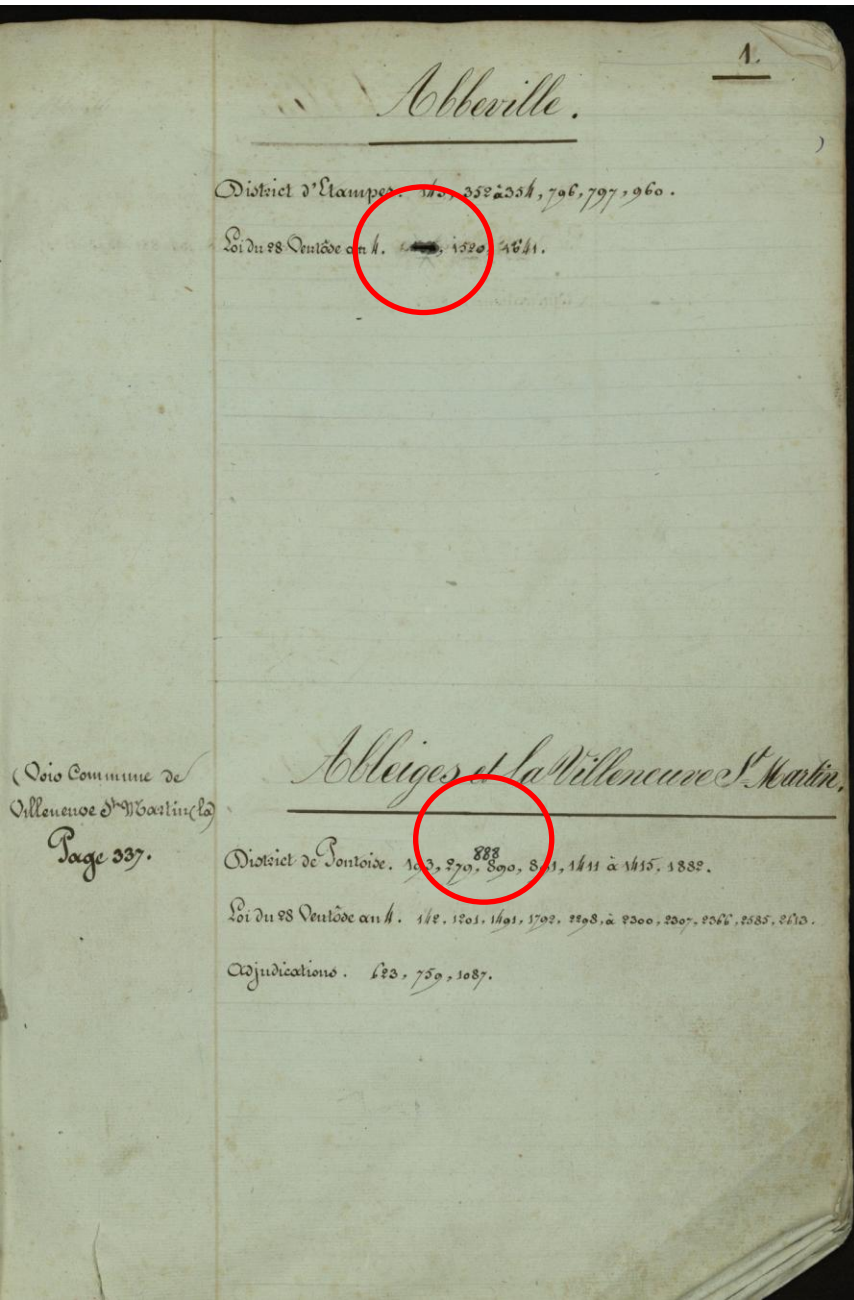 1.
Abbeville.
District d'Etampes. 143, 352 à 354, 796, 797, 960.
Loi du 28 Ventôse an 4. 1520, 1641.
Ableiges et la Villeneuve St Martin.
(Voir Commune de
Villeneuve St Martin (la)
Page 337.
888
District de Pontoise. 193, 279, 890, 891, 1411 à 1415, 1882.
Loi du 28 Ventôse an 4. 142, 1201, 1491, 1792, 2298, à 2300, 2307, 2366, 2585, 2613.
Adjudications. 623, 759, 1087.